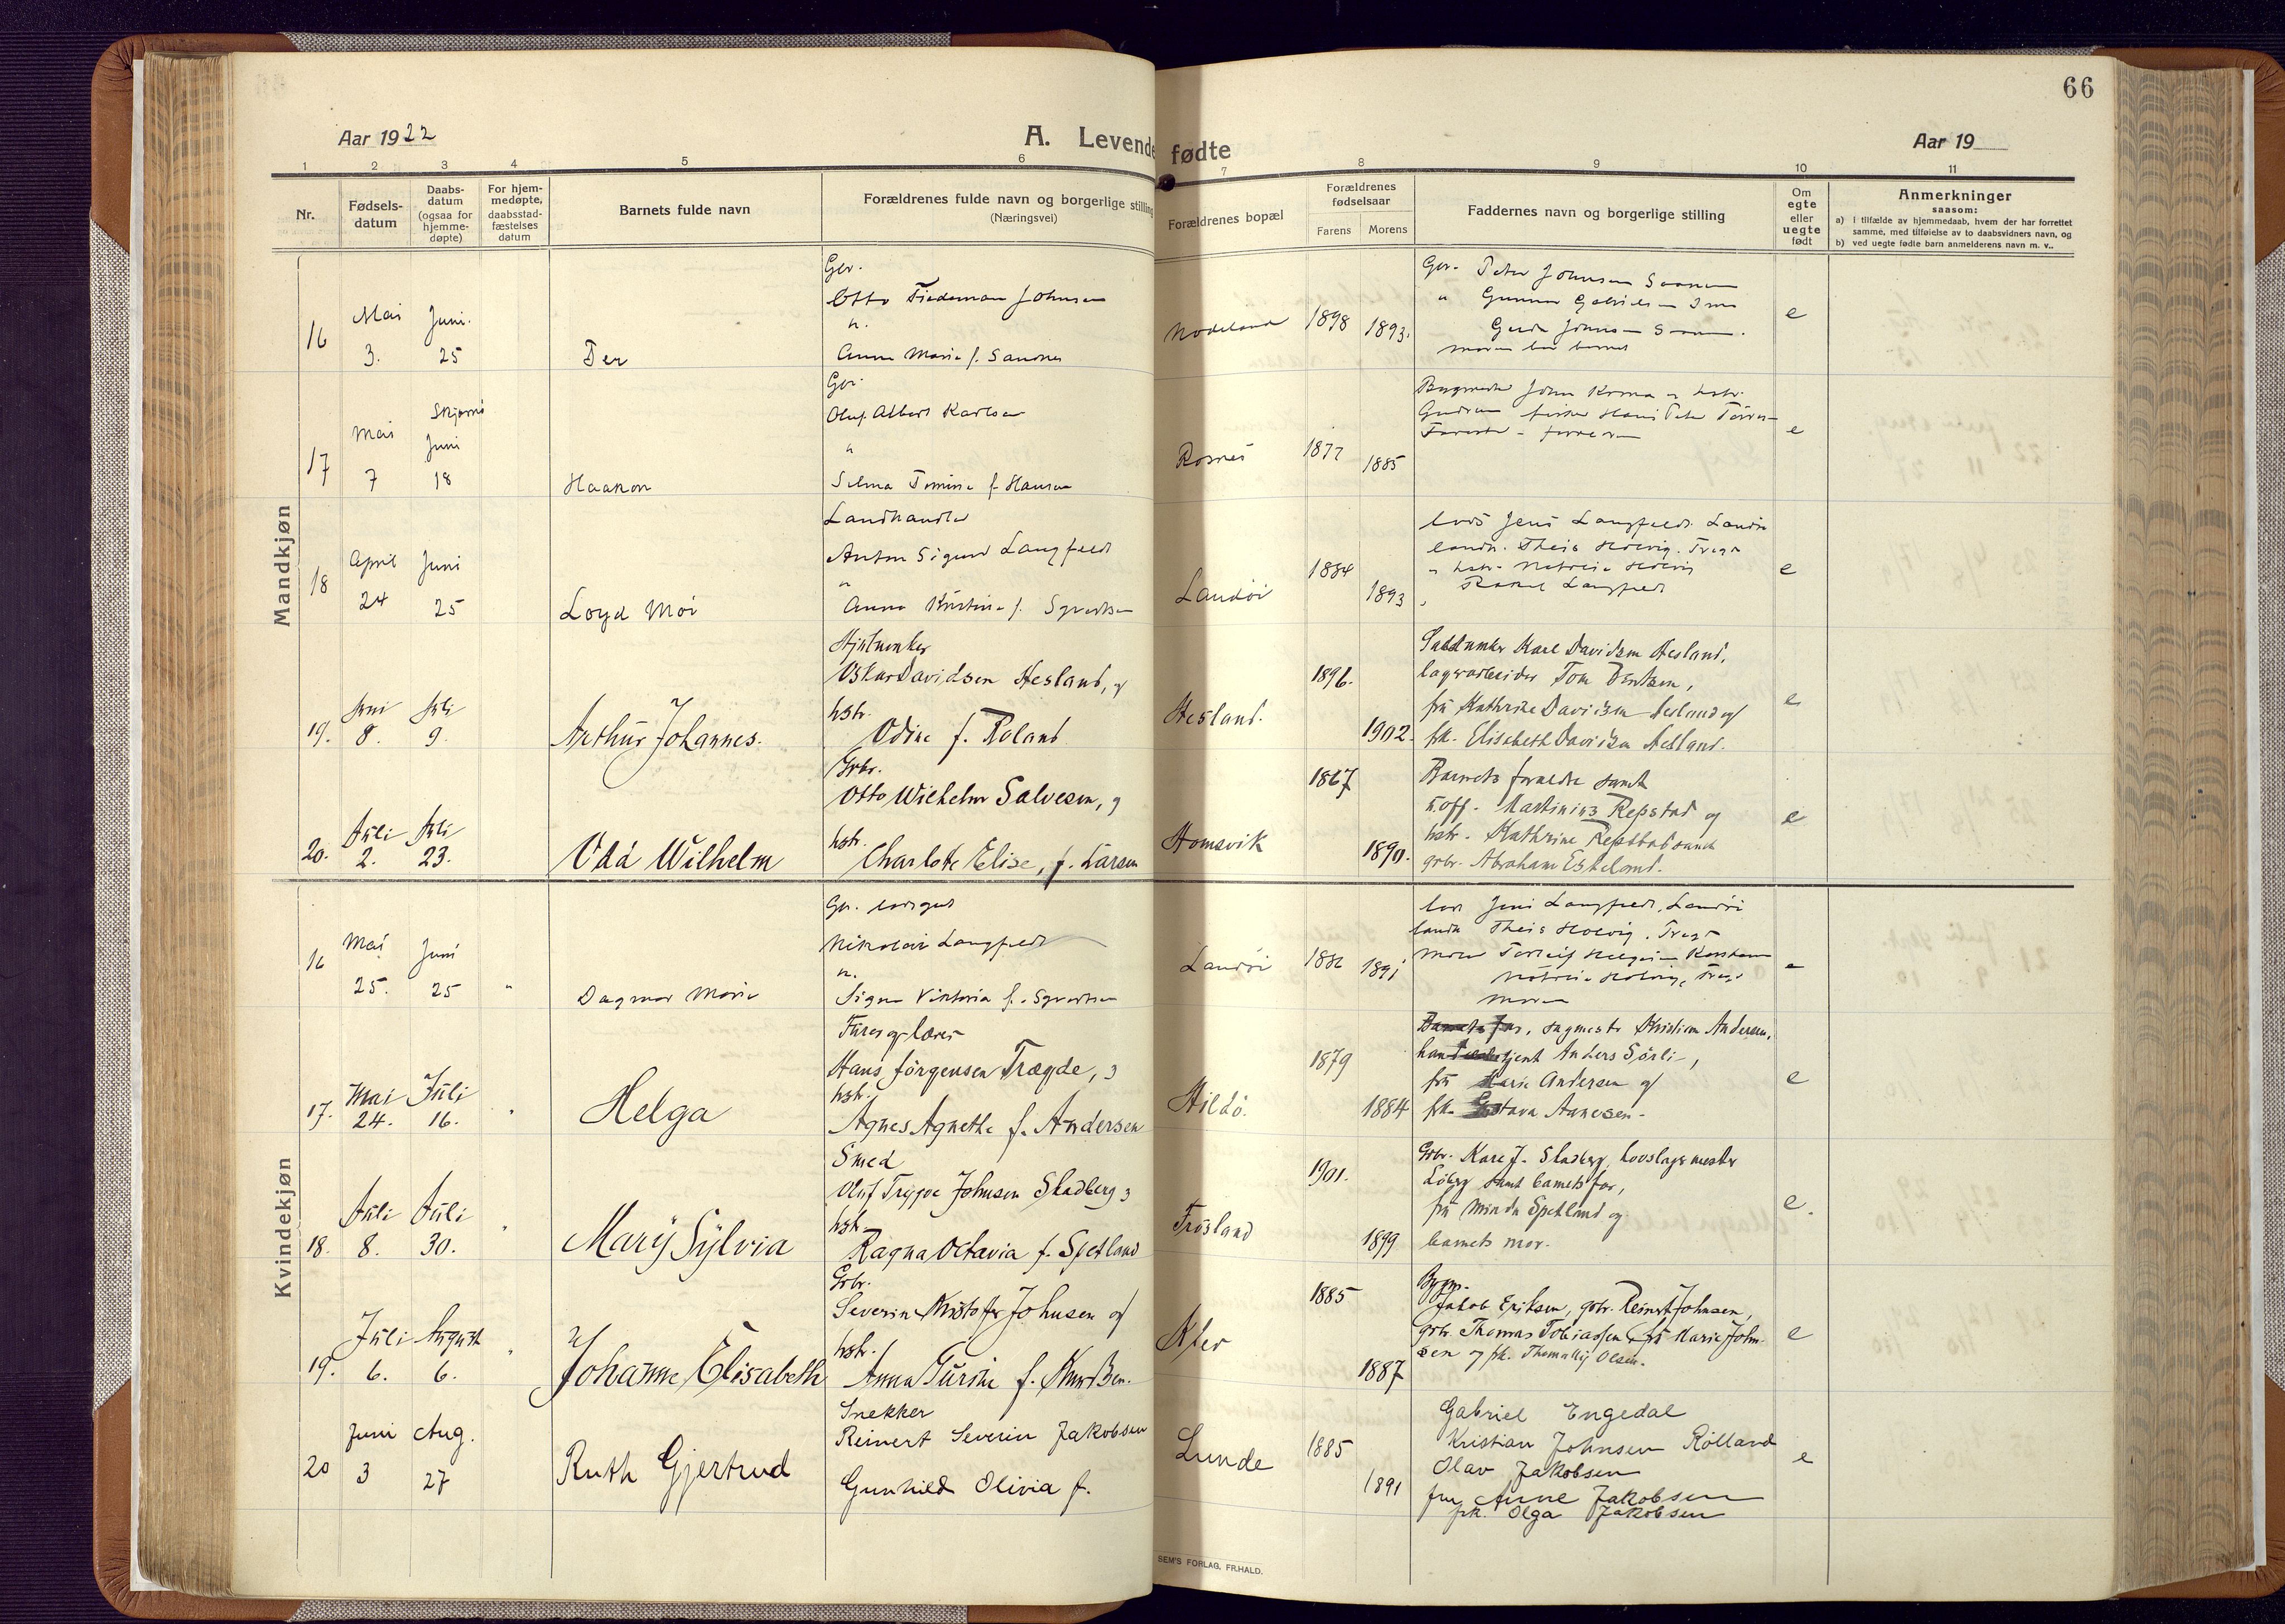 66
Aar 1922
A. Levende fødte
Aar 19
1 2 3 4 5 6 7 8 9 10 11
Nr.
Fødsels-
datum
Daabs-
datum
(ogsaa for
hjemme-
døpte)
For hjem-
medøpte,
daabsstad-
fæstelses
datum
Barnets fulde navn
Forældrenes fulde navn og borgerlige stilling
(Næringsvei)
Forældrenes bopæl
Forældrenes
fødselsaar
Farens
Morens
Faddernes navn og borgerlige stilling
Om
egte
eller
uegte
født
Anmerkninger
saasom:
a) I tilfælde av hjemmedaab, hvem der har forrettet
samme, med tilføielse av to daabsvidners navn, og
b) ved uegte fødte barn anmelderens navn m. v..
Mandkjøn
16
Mai
3.
Juni.
25
Per
Otto Tiedeman Johnsen
Anna Marie f. Sandnes
Nodeland
1898
1893.
Peter Johnsen
e
17
Mai
7
Juni
18
Haakon
Oluf Albert Karlsen
Selma Tomine f. Hansen
Rosnes
1877
1885
e
18
April
24
Juni
25
Loyd Moi
Landhandler
Anton Sigurd Langfeldt
Anna Kristine f. Syvertsen
Landöi
1884
1893
Lods Jens Langfeldt Landöi
landh. Theis Holvig. Trægd
Langfeldt
e
19.
Juni
8.
Juli
9.
Arthur Johannes.
Hjulmaker
Oskar Davidsen Hesland, og
hstr.
Odine f. Roland
Hesland.
1896.
1902.
Karl Davidsen Hesland,
lagerarbeider Tom Berntsen,
fru Kathrine Davidsen Hesland og
frk. Elisabeth Davidsen Hesland.
e
20.
Juli
2.
Juli
23.
Odd Wilhelm
Grbr.
Otto Wilhelm Salvesen, og
hstr.
Charlotte Elise, f. Larsen
Homsvik
1867
1890.
Barnets forældre samt
uoff. Martinius Repstad og
hstr. Kathrine Repstad samt
grbr. Abraham Eskeland.
e
Kvindekjøn
16
Mai
25.
Juni
25
Dagmar Marie
Nikolai Langfeldt
Signe Viktoria f. Syvertsen
Landöi
1886
1891
Jens Langfeldt, Landöi
landh Theis Holvig. Trægd
e
17.
Mai
24.
Juli
16.
Helga
Hans Jörgensen Trægde, og
hstr.
Agnes Agnethe f. Andersen
Hildö.
1879
1884
Barnets far, sagmester Kristian Andersen,
Anders Sörli,
fru Marie Andersen og
frk. Gustava Aanesen.
e
18.
Juli
8.
Juli
30.
Mary Sylvia
Smed
Oluf Trygve Johnsen Stadberg og
hstr.
Ragna Octavia f. Spetland
Frösland
1901.
1899
Grbr. Kare J. Stadberg, hovslagermester
Löberg samt barnets far,
fru Minda Spetland og
barnets mor.
e.
19.
Juli
6.
August
6.
Johanne Elisabeth
Grbr.
Severin Kristoffer Johnsen og
hstr.
Anna Turine f. Knudsen.
Klev
1885
1887
Bygm.
Jakob Eriksen, grbr. Reinert Johnsen,
grbr. Thomas Tobiassen, fru Marie John-
sen og frk. Thomally Olsen.
e
20
Juni
3
Aug.
27
Ruth Gjertrud
Snekker
Reinert Severin Jakobsen
Gunhild Olivia f.
Lunde
1885
1891
Gabriel Engedal
Kristian Johnsen Rölland
Olav Jakobsen
fru Anne Jakobsen
frk. Olga Jakobsen
e
SEM'S FORLAG, FR.HALD.